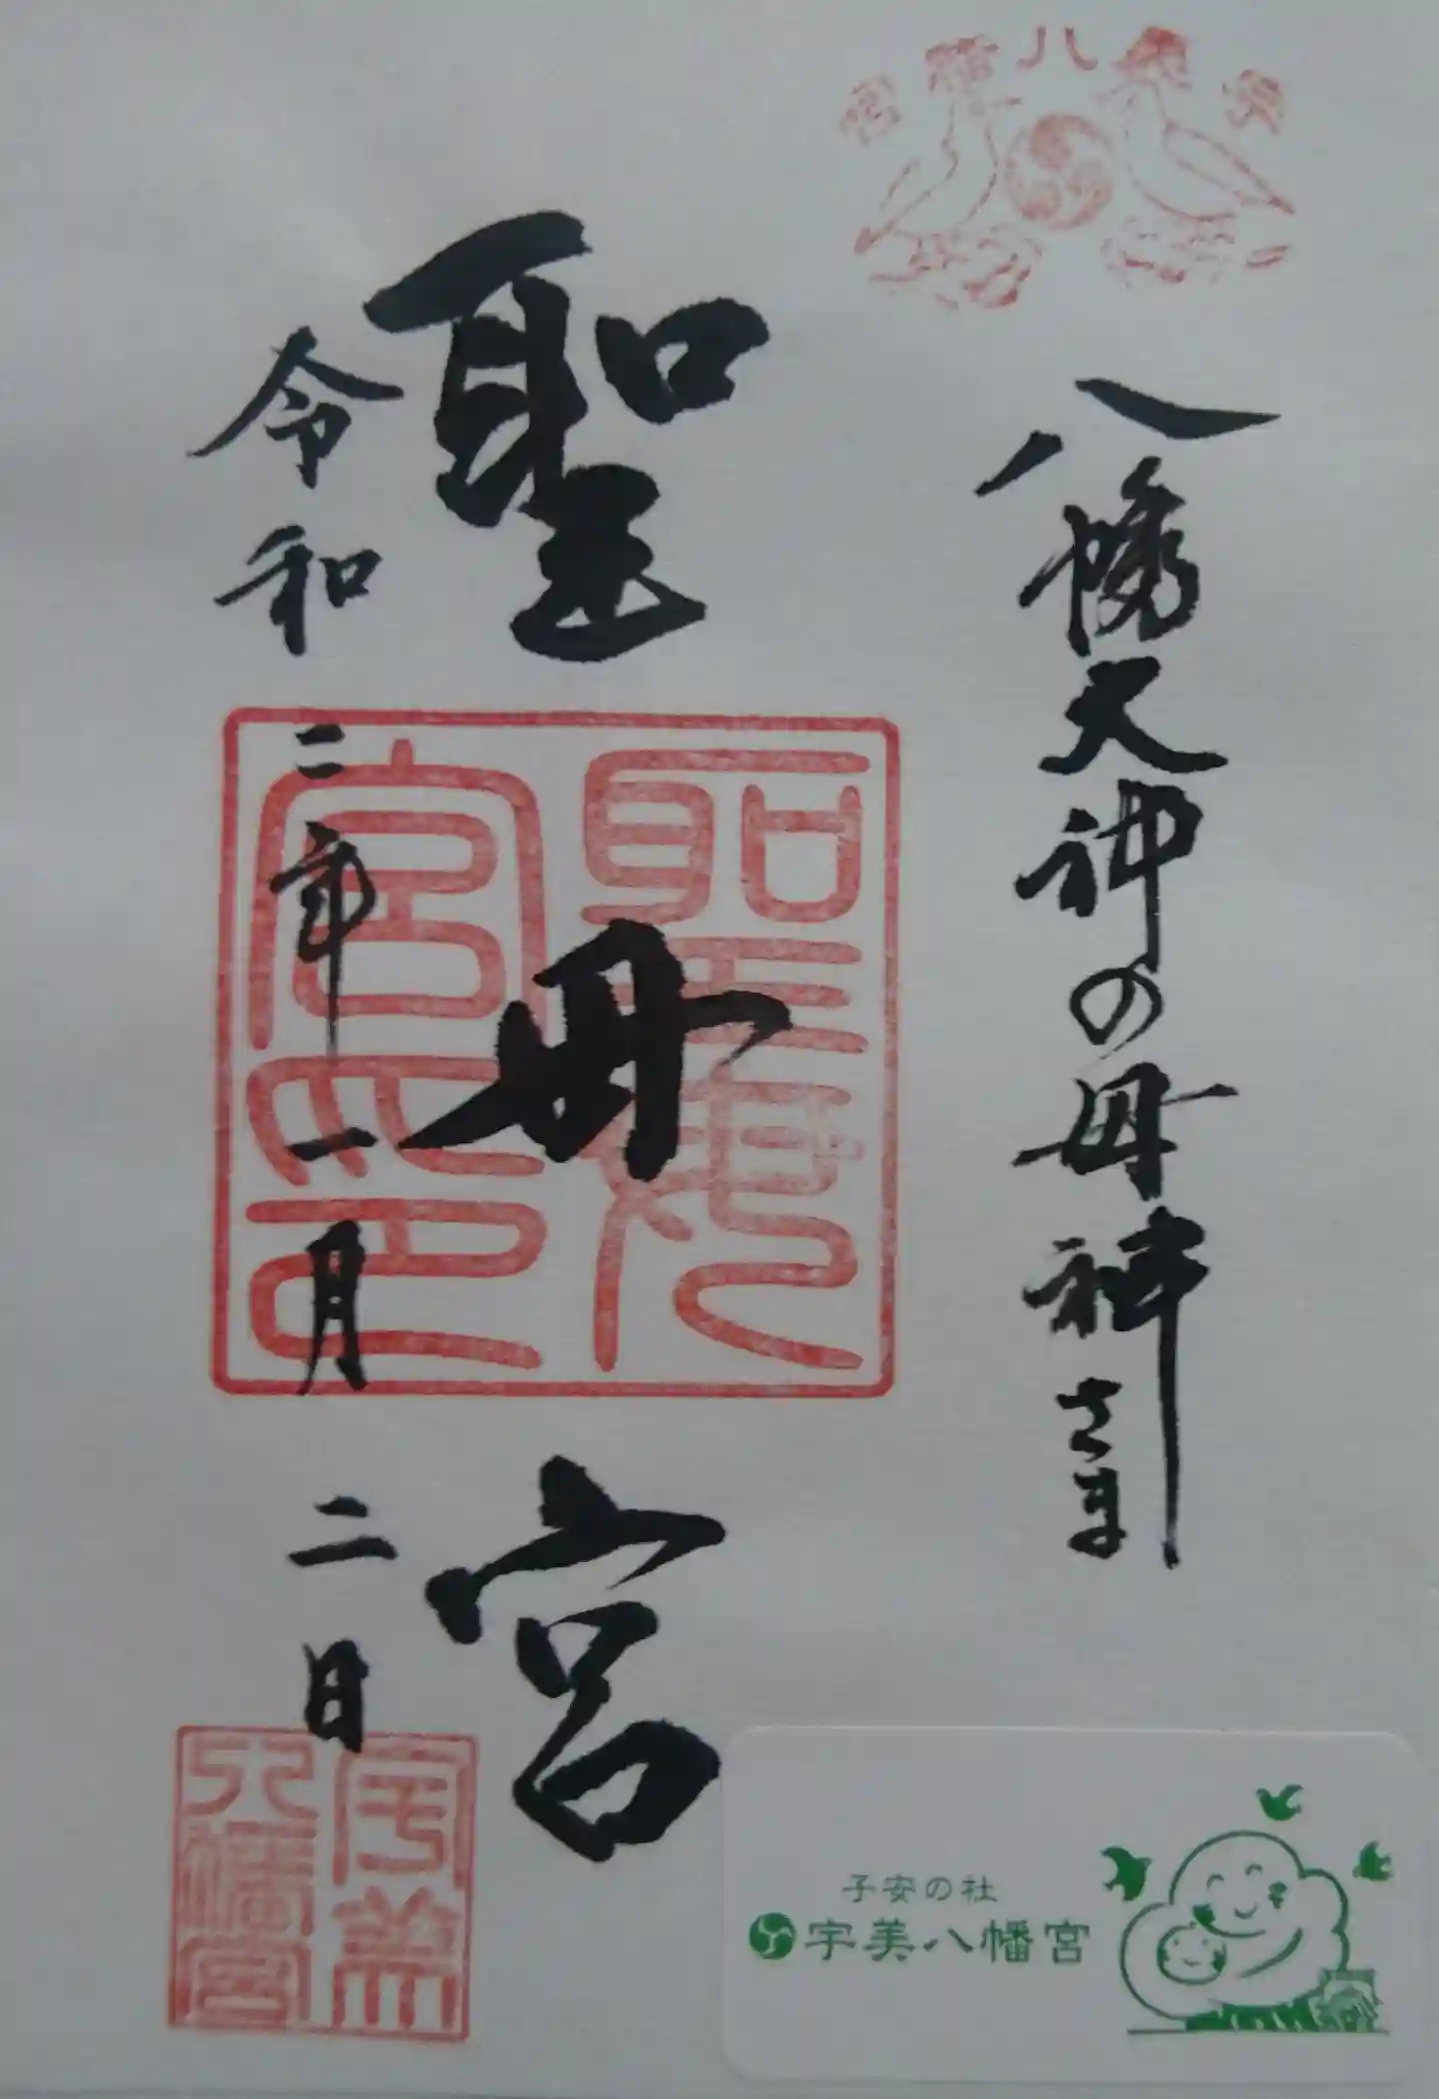 宇美八幡宮
八幡大神の母神さま
聖母宮
聖母宮印
令和二年一月二日
宇美八幡宮
子安の社
宇美八幡宮